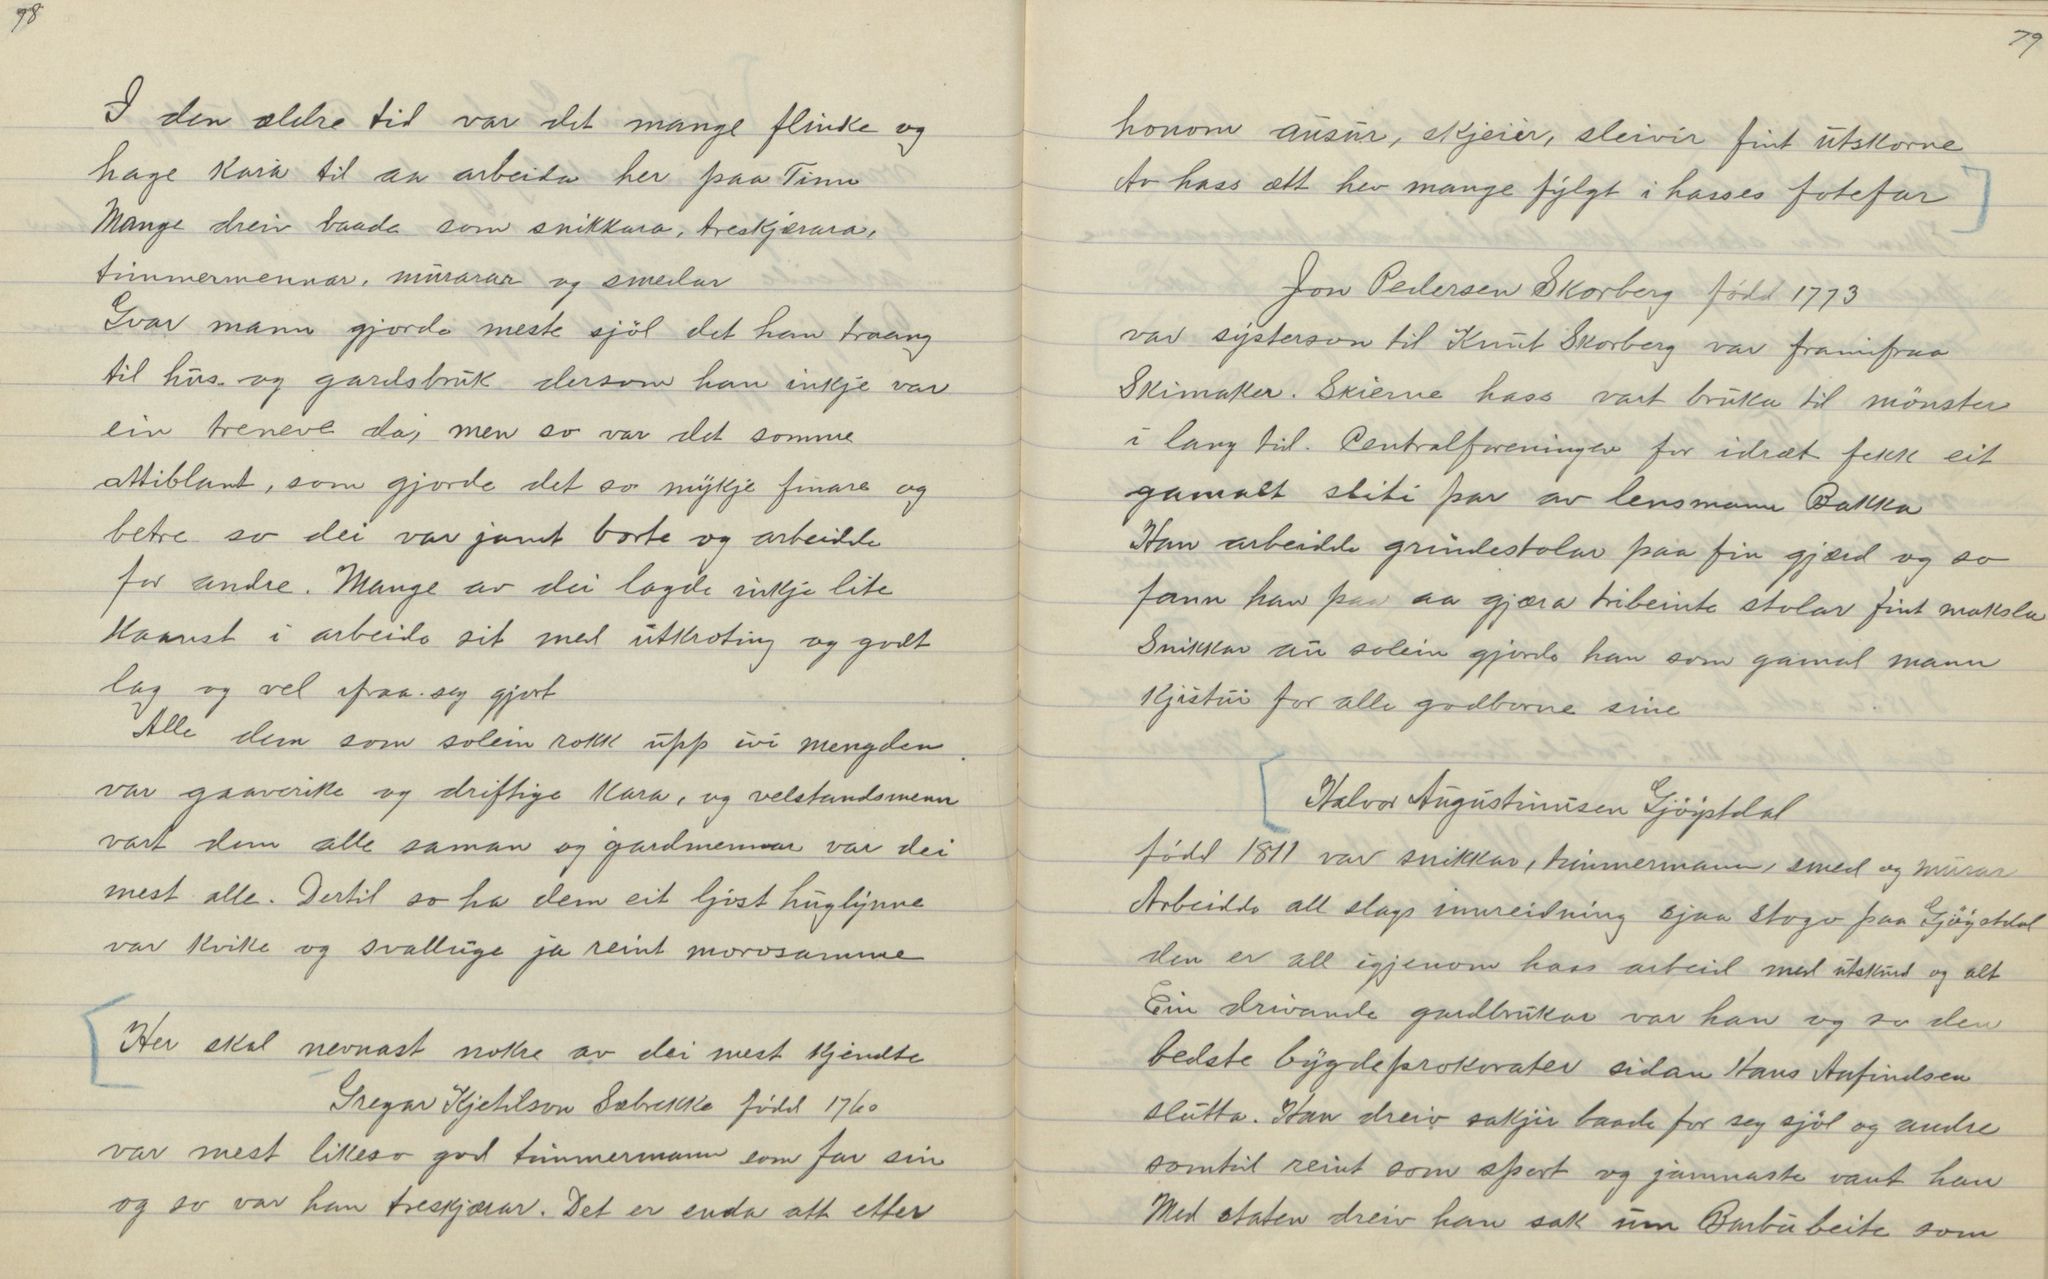 78
I den ældre tid var det mange flinke og
hage kara til aa arbeida her paa Tinn
Mange dreiv baade som snikkara, treskjærara,
timmermennar, murarar og smedar
Gvar mann gjorde meste sjöl det han traang
til hus og gardsbruk dersom han inkje var
ein treneve da, men so var det somme
attiblant, som gjorde det so mykje finare og
betre so dei var jamt borte og arbeidde
for andre. Mange av dei lagde inkje lite
kaanst i arbeide sit med utkroting og godt
lag og vel ifraa seg gjort
Alle dem som solein rokk upp ivi mengden
var gaaverike og driftige kara, og velstandsmenn
vart dem alle saman og gardmennar var dei
mest alle. Dertil so ha dem eit ljost huglynne
var kvike og svalluge ja reint morosamme
Her skal nevnast nokre av dei mest kjendte
Gregar Kjetilson Sæbrekke född 1760
var mest likeso god timmermann som far sin
og so var han treskjærar. Det er enda att etter
79
honom ausur, skjeier, sleivir fint utskorne
Av hass ætt hev mange fylgt i hasses fotefar
Jon Pedersen Skorberg född 1773
var systerson til Knut Skorberg var framifraa
Skimaker. Skierne hass vart bruka til mönster
i lang tid. Centralforeningen for idræt fekk eit
gamalt sliti par av lensmann Bakka
Han arbeidde grindestolar paa fin gjærd og so
fann han paa aa gjæra tribeinte stolar fint maksla
Snikkar au solein gjorde han som gamal mann
kjistui for alle godborne sine
Halvor Augustinusen Gjöystdal
född 1811 var snikkar, timmermann, smed og murar
Arbeidde all slags innreidning sjaa stogo paa Gjöystdal
den er all igjenom hass arbeid med utskurd og alt
Ein drivande gardbrukar var han og so den
bedste bygdeprokorater sidan Hans Anfindsen
slutta. Han dreiv sakjir baade for seg sjöl og andre
somtid reint som sport og jamnaste vant han
Med staten dreiv han sak um Barbubeite som